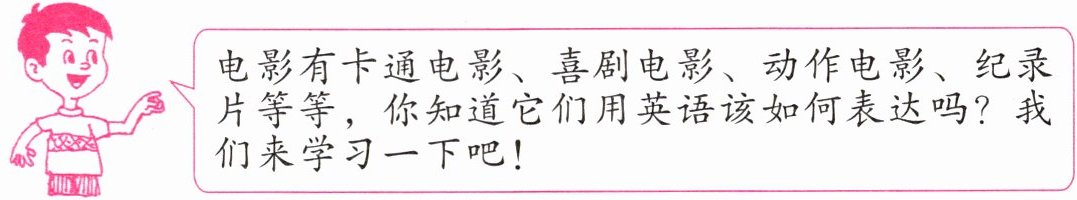 电影有卡通电影、喜剧电影、动作电影、纪录
片等等，你知道它们用英语该如何表达吗？我
们来学习一下吧！